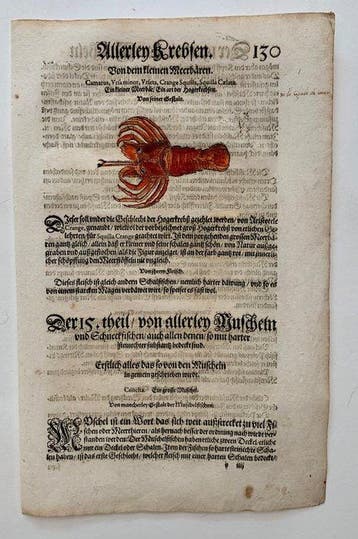 Allerley Krebsen. 130
Von dem kleinen Meerbären.
Cammarus, Vrsa minor, Vrseta, Crange Squilla, Squilla Cælata.
Ein kleiner Meerbär/ Ein art der Hogerkrebsen.
Von seiner Gestalt.
Dieser soll under die Geschlecht der Hogerkrebß gezehlet werden/ von Aristotele
Crange, genandt/ wiewol der vorbezeichnet groß Hogerkrebß von etlichen Ge-
lehrten/ für Squilla Crange geachtet wirt. Ist dem vorgehenden grossen Meerbä-
ren gantz gleich/ allein daß er kleiner und seine schalen gantz schön/ von Natur außge-
graben und außgestochen/ als die Figur anzeiget/ ist an der farb gantz rot/ mit
schöpffung den Meerstöffeln nit ungleich.
Von ihrem Fleisch.
Dieses fleisch ist gleich andern Schalfischen/ nemlich harter däwung/ und so es
von einem starcken Magen verdäwet wirt/ so speiset es fast wol.
Der 15. theil/ von allerley Muscheln
und Schneckfischen/ auch allen denen/ so mit harter
steinechter substantz bedeckt sind.
Erstlich alles das so von den Muscheln
in gemein geschrieben wirdt.
Concha. Ein grosse Muschel.
Von mancherley Gestalt der Muschelfischen.
MVschel ist ein Wort das sich weit außstrecket zu viel Fi-
schen oder Meerthieren/ als hernach besser der ordnung nach wirdt ver-
standen werden. Der Muschelfischen haben etliche zween Deckel/ etliche
nur ein Deckel oder Schalen. Von den Fischen so harte steinechte Scha-
len haben/ ist das erste Geschlecht/ welcher fleisch mit einer harten Schalen bedeckt/
iiij